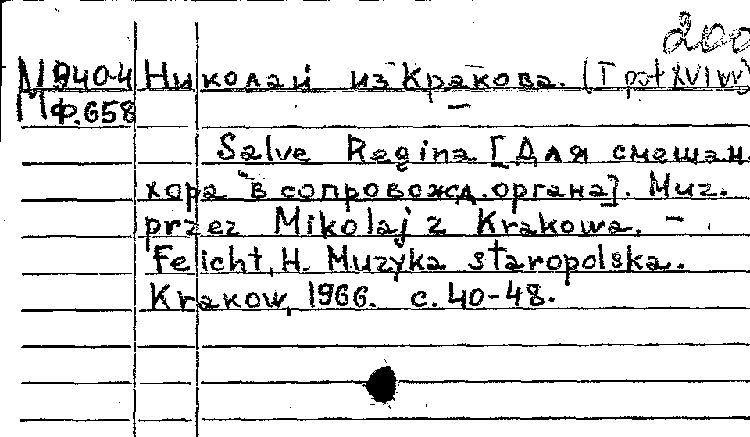 200
М 940-4 Николай из Кракова. (I poł XVI w)
МФ.658
Salve Regina [Для смешан.
хора в сопровожд. органа]. Muz.
przez Mikolaj z Krakowa. –
Feicht, H. Muzyka staropolska.
Krakow, 1966. с. 40-48.